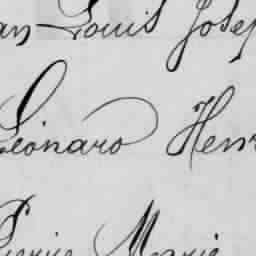 an Louis Josep
Léonard Henr
Pierre Marie